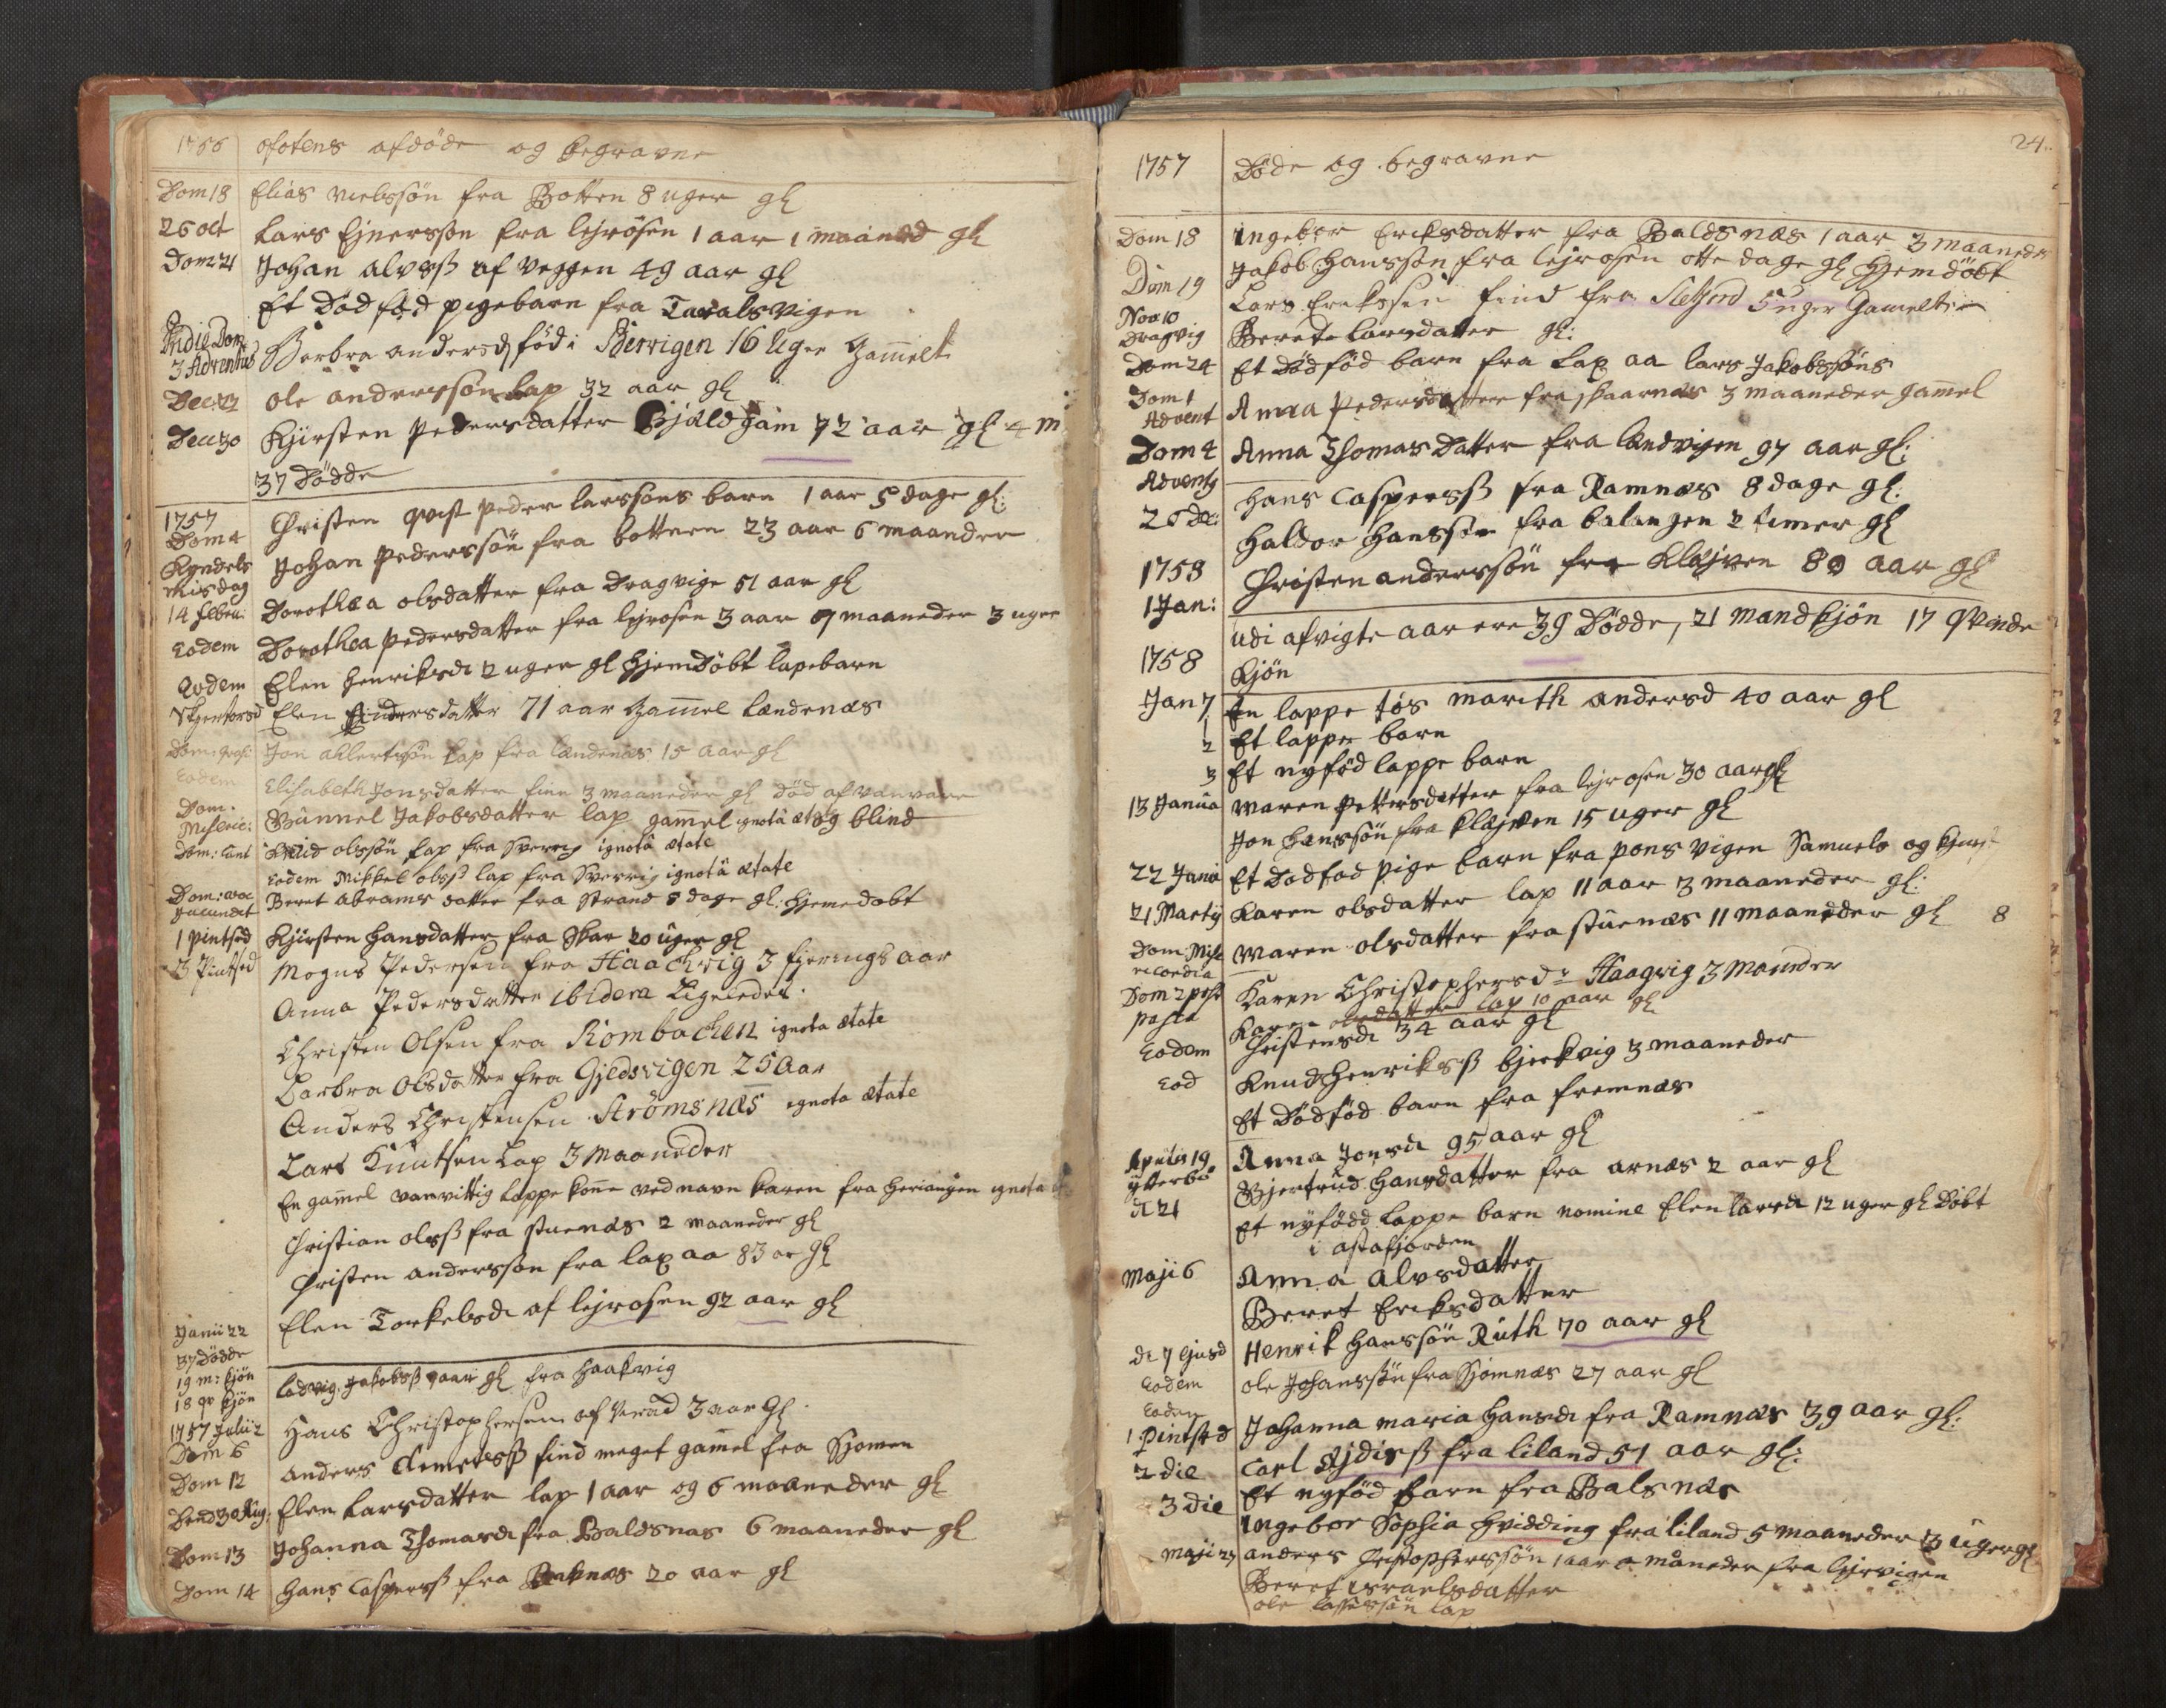 1756 ofotens afdöde og begravne
Dom 18 Elias nielssön fra Botten 8 uger gl
26 oct Lars Ejnerssön fra lejrösen 1 aar 1 maaned gl
Dom 21 Johan alvsß af veggen 49 aar gl
Et död föd pigebarn fra Taralsvigen
Pridie Dom 3 Adventus Berbra andersd föd i Berrigen 16 Uger Gammelt
Dec 22 ole anderssön Lap 32 aar gl
Dec 30 Kjirsten Pedersdatter Bjældgam 72 aar gl 4 m
37 Dödde
1757
Dom 4 Christen qvist peder larssöns barn 1 aar 5 dage gl:
Kyndels misdag Johan Pederssön fra bottnen 23 aar 6 maander
14 febru: Dorothea olsdatter fra Dragvige 51 aar gl
Eodem Dorothea pedersdatter fra lejrosen 3 aar 7 maaneder 3 uger
Eodem Elen henriksd 2 uger gl hjemdöbt lapebarn
Skjertorsd Elen Eindersdatter 71 aar Gammel Lændenæs
Jon allertssön Lap fra Lændenæs 15 aar gl
Eodem Elisabeth Jonsdatter finn 3 maaneder gl död af vanvare
Dom. Miseric: Gunnel Jakobsdatter lap gammel ignotâ æt og blind
Dom: Cant olssön Lap fra Sverrig ignotâ ætate
Eodem Mikkel olsß lap fra Sverrig ignotâ ætate
Dom: voc Jucundit Beret abrams datter fra Strand 8 dage gl: hjemedöbt
1 pintsed Kjirsten hansdatter fra Skar 20 uger gl
3 Pintsed Mogns Pedersen fra Haachvig 3 fjerings aar
Anna Pedersdatter ibidem Ligeledes.
Christen Olsen fra Rombachen ignota ætate
Barbra Olsdatter fra Gjedsvigen 25 Aar
Anders Christensen Strömsnæs ignota ætate
Lars Knutsen Lap 3 Maaneder
En gammel vanvittig lappe konne ved navn karen fra herjangen ignota
Christian olsß fra stuenæs 2 maaneder gl
Christen anderssön fra laxaa 83 ar gl
Junii 22 Elen Torkelsd af lejrosen 92 aar gl
37 dödde
19 m: kjön
18 qv kjön
Ludvig Jakobsß aar gl fra haakvig
1757 Julii 2
Dom 6 Hans Christophersen af 3 aar Gl.
Dom 12 anders find meget gammel fra Skjomen
Dend 30 Aug: Elen Larsdatter lap 1 aar og 6 maaneder gl
Dom 13 Johanna Thomasd fra Baldsnæs 6 maaneder gl
Dom 14 hans Caspersß fra 20 aar gl
24.
1757 Döde og begravne
Dom 18 Ingebor Eriksdatter fra Baldsnæs 1 aar 3 maaneder
Jakob hanssön fra lejrosen otte dage gl hjemdöbt
Dom 19 Lars Erikssen find fra Sletjord 5 uger Gamelt
Nov 10 Dragvig Berete larsdatter gl:
Dom 24 Et dödföd barn fra Laxaa lars Jakobssöns
Dom 1 Advent Anna Pedersdatter fra skaarnæs 3 maaneder gammel
Dom 4 Advents Anna Thomas Datter fra landvigen 97 aar gl:
hans Caspersß fra Ramnæs 8 dage gl:
26 dec: haldor hanssön fra balangen 2 timer gl
1758
1 Jan: Christen anderssön fra klejven 80 aar gl
udi afvigte aar ere 39 Dödde, 21 mandkjön 17 qvinde
kjön
1758
Jan 7 1 En lappe tös marith andersd 40 aar gl
2 Et lappe barn
3 Et nyföd lappe barn
13 Janua Maren Pettersdatter fra lejrosen 30 aar gl
Jon hanssön fra klejven 15 uger gl
22 Janu Et dödföd pige barn fra ponsvigen Samuels og
21 Martij Karen olsdatter lap 11 aar 3 maaneder gl:
Dom: Mise ricordia Maren olsdatter fra stuenæs 11 maaneder gl 8
Dom 2 post pasca Karen Christophersdr Haagvig 3 Maander
Karen olsdatter lap 10 aar gl.
Christensd 34 aar gl
Eodem Knud henriksß bjerkvig 3 maaneder
Eod Et dödföd barn fra fremnæs
Aprilis 19 ytterbö Anna Jonsd 95 aar gl
Gjertrud hansdatter fra arnæs 2 aar gl
d 21 Et nyfödd lappe barn nomine Elen larsd 12 uger gl döbt
i astafjorden
Maji 6 Anna Alvsdatter
Beret Eriksdatter
d 7 ejusd Henrik hanssön Ruth 70 aar gl
Eodem ole Johanssön fra Skjomnæs 27 aar gl
Eodem
1 pintsed Johanna maria hansd fra Ramnæs 39 aar gl:
2 die Carl fra liland 51 aar gl:
3 die Et nyföd barn fra Balsnæs
Ingebor Sophia hvidding fra liland 5 maaneder 3 uger gl
Maji 27 anders Christopherssön 1 aar måneder fra lejrvigen
Beret israelsdatter
ole lassessön lap